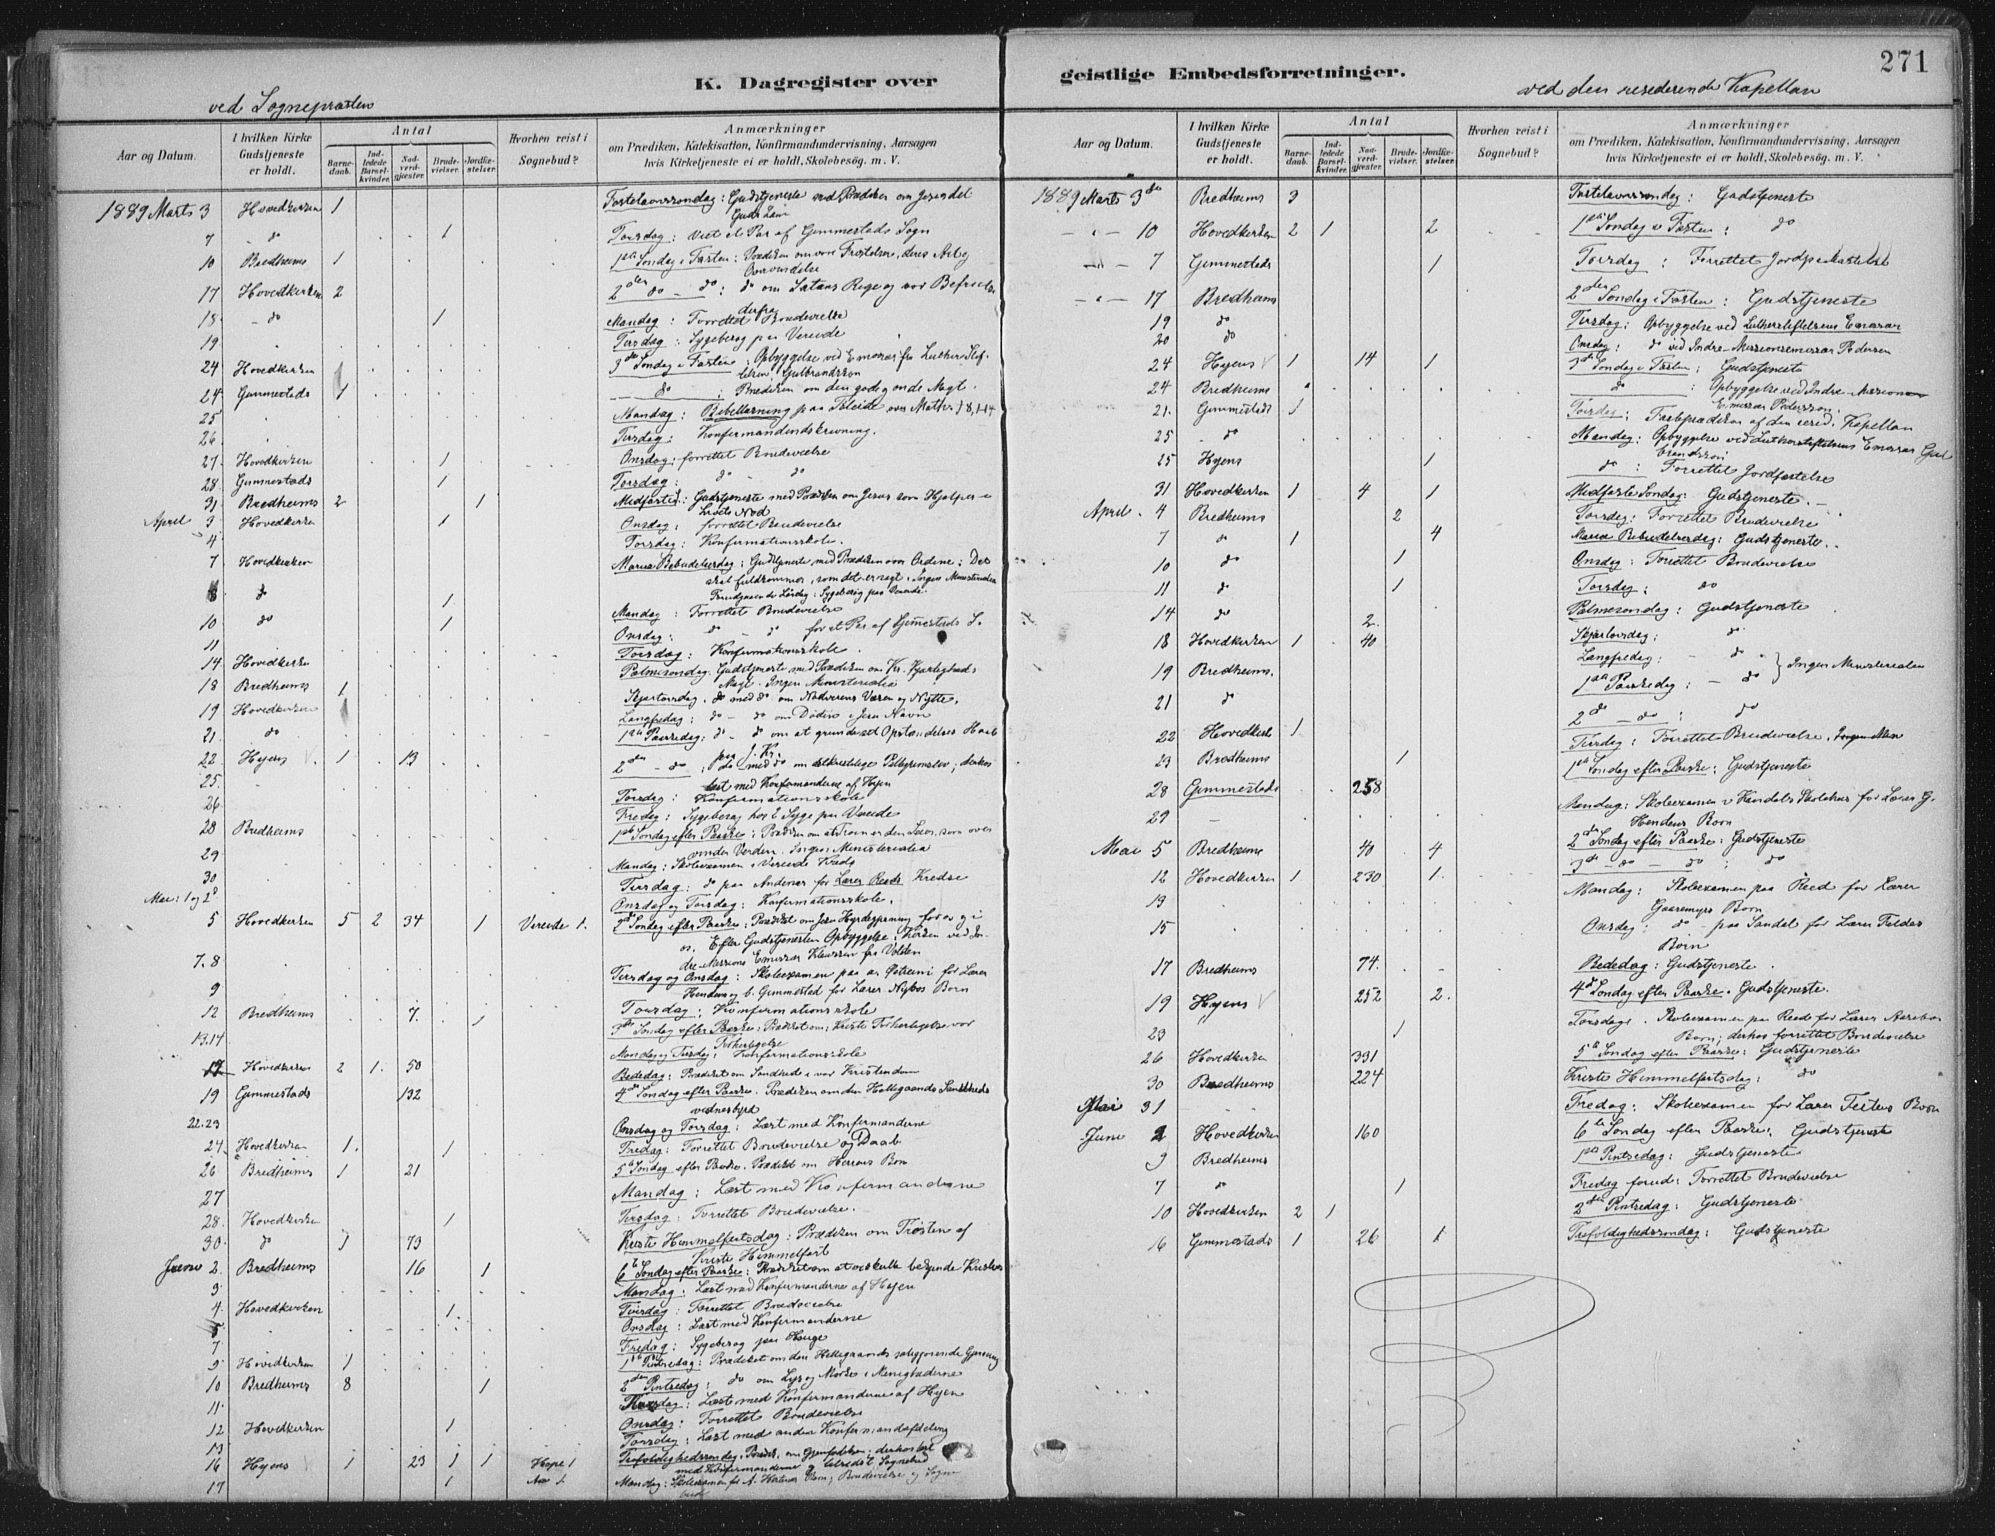 271
K. Dagregister over
ved Sognepræsten
Aar og Datum.
I hvilken Kirke Gudstjeneste er holdt.
Antal
Barnedaab.
Indledede Barselkvinder.
Nadverdgjester
Brudevielser.
Jordfæstelser
Hvorhen reist i Sognebud?
Anmærkninger
om Prædiken, Katekisation, Konfirmandundervisning, Aarsagen
hvis Kirketjeneste ei er holdt, Skolebesøg. m. V.
1889 Marts 3 Hovedkirken 1 Fastelavnssondag: Gudstjeneste ved Prædiken om Jesus det
Guds Lam
7 do 1 Torsdag: Viet et Par af Gimmestads Sogn
10 Bredheims 1 1ste Søndag i Fasten: Prædiken om vore Fristelser, deres Art og
Overvindelse
17 Hovedkirken 2 2den do - do: do om Satans Rige og vor Befrielse
derfra
18 - do 1 Mandag: Forrettet Brudevielse
19 Tirsdag: Sygebesøg paa Vereide
24 Hovedkirken 3die Søndag i Fasten: Opbyggelse ved Emissær fra Luther Stif-
telsen Gulbrandsen
24 Gimmestads 1 do: Prædiken om den gode og onde Magt.
25 Mandag: Bibellæsning paa
26 Tirsdag: Konfirmandindskrivning.
27 Hovedkirken 1 Onsdag: forrettet Brudevielse
28 Gimmestads 1 Torsdag: do do
31 Bredheims 2 1 Midfaste S.: Gudstjeneste med Prædiken om Jesus som Hjælper i
Livets Nød
April 3 Hovedkirken 1 Onsdag: forrettet Brudevielse
4 Torsdag: Konfirmationsskole.
7 Hovedkirken Mariæ Bebudelsesdag: Gudstjeneste med Prædiken over Ordene: Det
skal fuldkommes, som det er sagt. Ingen Ministerialia
8 do 1 Mandag: Forrettet Brudevielse
10 do 1 Onsdag: do - do for et Par af Gimmestads S.
11 Torsdag: Konfirmationsskole.
14 Hovedkirken Palmesøndag: Gudstjeneste med Prædiken om Kr. Kjærligheds
Magt. Ingen Ministerialia
18 Bredheims 1 Skjærtorsdag: do med do om Nadverens Væsen og Nytte.
19 Hovedkirken Langfredag: do - do om Døden i Jesu Navn
21 do 1ste Paaskedag: do - do om at grunde sit Opstandelses Haab
paa J. Kr.
22 Hyens 1 13 2den - do: do med do om Pilegrimslev; derhos
læst med Konfirmanderne af Hyen
25 Torsdag: Konfirmationsskole
26 Fredag: Sygebesøg hos 2 Syge paa Vereide
28 Bredheims 1ste Søndag efter Paaske: Prædiken om at Troen er den Seier, som over-
vinder Verden. Ingen Ministerialia
29 Mandag: Skoleexamen i Vereide Kreds
30 Tirsdag: do paa Andenæs for Lærer Reeds Kredse
Mai 1 og 2 Onsdag og Torsdag: Konfirmationsskole.
5 Hovedkirken 5 2 34 1 Vereide 1. 2den Søndag efter Paaske: Prædiket om Jesu Hyrdegjerning for os og i
os. Efter Gudstjenesten Opbyggelse i Kirken ved In-
dre-Missions Emissær Klaussen fra Volden
7. 8 Tirsdag og Onsdag: Skoleexamen paa for Lærer
Hendens og b. Gimmestad for Lærer Børn
9 Torsdag: Konfirmationsskole
12 Bredheims 7. 1 3die Søndag efter Paaske: Prædiket om: Kristi Forherligelse vor
Forherligelse
13. 14 Mandag og Tirsdag: Konfirmationsskole
17 Hovedkirken 2 1 50 Bededag: Prædiket om Sandhed i vor Kristendom
19 Gimmestads 132 4de Søndag efter Paaske: Prædiken om den Helligaands Sandheds
vidnesbyrd
22. 23 Onsdag og Torsdag: Læst med Konfirmanderne
24 Hovedkirken 1. 1 Fredag: Forrettet Brudevielse og Daab
26 Bredheims 1 21 5te Søndag efter Paaske: Prædiket om Herrens Bøn
27 Mandag: Læst med Konfirmanderne
28. Hovedkirken 1 Tirsdag: Forrettet Brudevielse.
30 do 1 73 Kristi Himmelfartsdag: Prædiken om Trøsten af
Kristi Himmelfart
Juni 2. Bredheims 16 1 6te Søndag efter Paaske: Prædiket om at vi skulle bekjende Kristus
3 Mandag: Læst med Konfirmanderne af Hyen
4. Hovedkirken 1. Tirsdag: Forrettet Brudevielse
5 Onsdag: Læst med Konfirmanderne
7 Fredag: Sygebesøg paa Hauge
9 Hovedkirken 1 1ste Pintsedag: Prædiket om den Helligaands saliggjørende Gjerning
10 Bredheims 8 1 2den Pintsedag: do om Lys og Mørke i Menighederne
11 Læst med Konfirmanderne af Hyen
12 Hovedkirken 1 Onsdag: Forrettet Brudevielse
13 Torsdag: Læst med anden Konfirmandafdeling
16 Hyens 1 23 1 1 Hope 1 Trefoldighedssøndag: Præd. om Gjenfødelsen; derhos læst
med Konfirmanderne Sognebud
17 1 Aa 1. Mandag: Skoleexamen for A. Børn; Brudevielse og Sogne-
bud
geistlige Embedsforretninger.
ved den residerende Kapellan
Aar og Datum.
I hvilken Kirke Gudstjeneste er holdt.
Antal
Barnedaab.
Indledede Barselkvinder.
Nadverdgjester
Brudevielser.
Jordfæstelser.
Hvorhen reist i Sognebud?
Anmærkninger
om Prædiken, Katekisation, Konfirmandundervisning, Aarsagen
hvis Kirketjeneste ei er holdt, Skolebesøg. m. V.
1889 Marts 3die Bredheims 3 Fastelavnssondag: Gudstjeneste
10 Hovedkirken 2 1 2 1ste Søndag i Fasten: do
7 Gimmestads 1 Torsdag: Forrettet Jordpaakastelse
17 Bredheims 2den Søndag i Fasten: Gudstjeneste
19 do Tirsdag: Opbyggelse ved Lutherstiftelsens Emissær
20 do Onsdag: do ved Indre-Missionsemissær Pedersen
24 Hyens 1 14 1 3die Søndag i Fasten: Gudstjeneste
24 Bredheims do: Opbyggelse ved Indre-Missionens
Emissær Pedersen.
21. Gimmestads 1 Torsdag: Fasteprædiken af den resid. Kapellan
25 do Mandag: Opbyggelse ved Lutherstiftelsens Emissær Gul-
brandsen
25 Hyens 1 do: Forrettet Jordfæstelse
31 Hovedkirken 1 4 1 Midfaste Søndag: Gudstjeneste.
April 4 Bredheims 2 Torsdag: Forrettet Brudevielse
7 do 1 4 Mariæ Bebudelsesdag: Gudstjeneste.
10 do 1 Onsdag: Forrettet Brudevielse
11 do 1 Torsdag: do
14 do 2. Palmesøndag: Gudstjeneste
18 Hovedkirken 1 40 Skjærtorsdag: do
19 Bredheims. Langfredag: - do Ingen Ministerialia
21 do 1ste Paaskedag: - do
22 Hovedkirk 1 2den - do: do
23 Bredheims 1 Tirsdag: Forrettet Brudevielse.
28 Gimmestads 258 1ste Søndag efter Paaske: Gudstjeneste
29 Mandag: Skoleexamen i Skolehus for Lærer G.
Hendens Børn
Mai 5 Bredheims 40 4 2den Søndag efter Paaske: Gudstjeneste
12 Hovedkirken 1 230 1. 3die - do - do: do
13 Mandag: Skoleexamen paa Reed for Lærer
Gaaremyrs Børn
15 Onsdag: do - paa Sandal for Lærer
Børn
17 Bredheims 74. Bededag: Gudstjeneste.
19 Hyens 252 2. 4de Søndag efter Paaske. Gudstjeneste.
23 1 Torsdag. Skoleexamen paa Reed for Lærer
Børn; derhos forrettet Brudevielse
26 Hovedkirken 331 5te Søndag efter Paaske: Gudstjeneste
30 Bredheims 224 Kristi Himmelfartsdag: do
Mai 31 Fredag: Skoleexamen for Lærer Børn
Juni 2 Hovedkirken 160 6te Søndag efter Paaske: Gudstjeneste
9 Bredheims 1ste Pintsedag: Gudstjeneste
7 do 1 Fredag forud: Forrettet Brudevielse
10 Hovedkirken 2 1 2den Pintsedag: Gudstjeneste
16 Gimmestads 1 26 1 Trefoldighedssøndag: Gudstjeneste